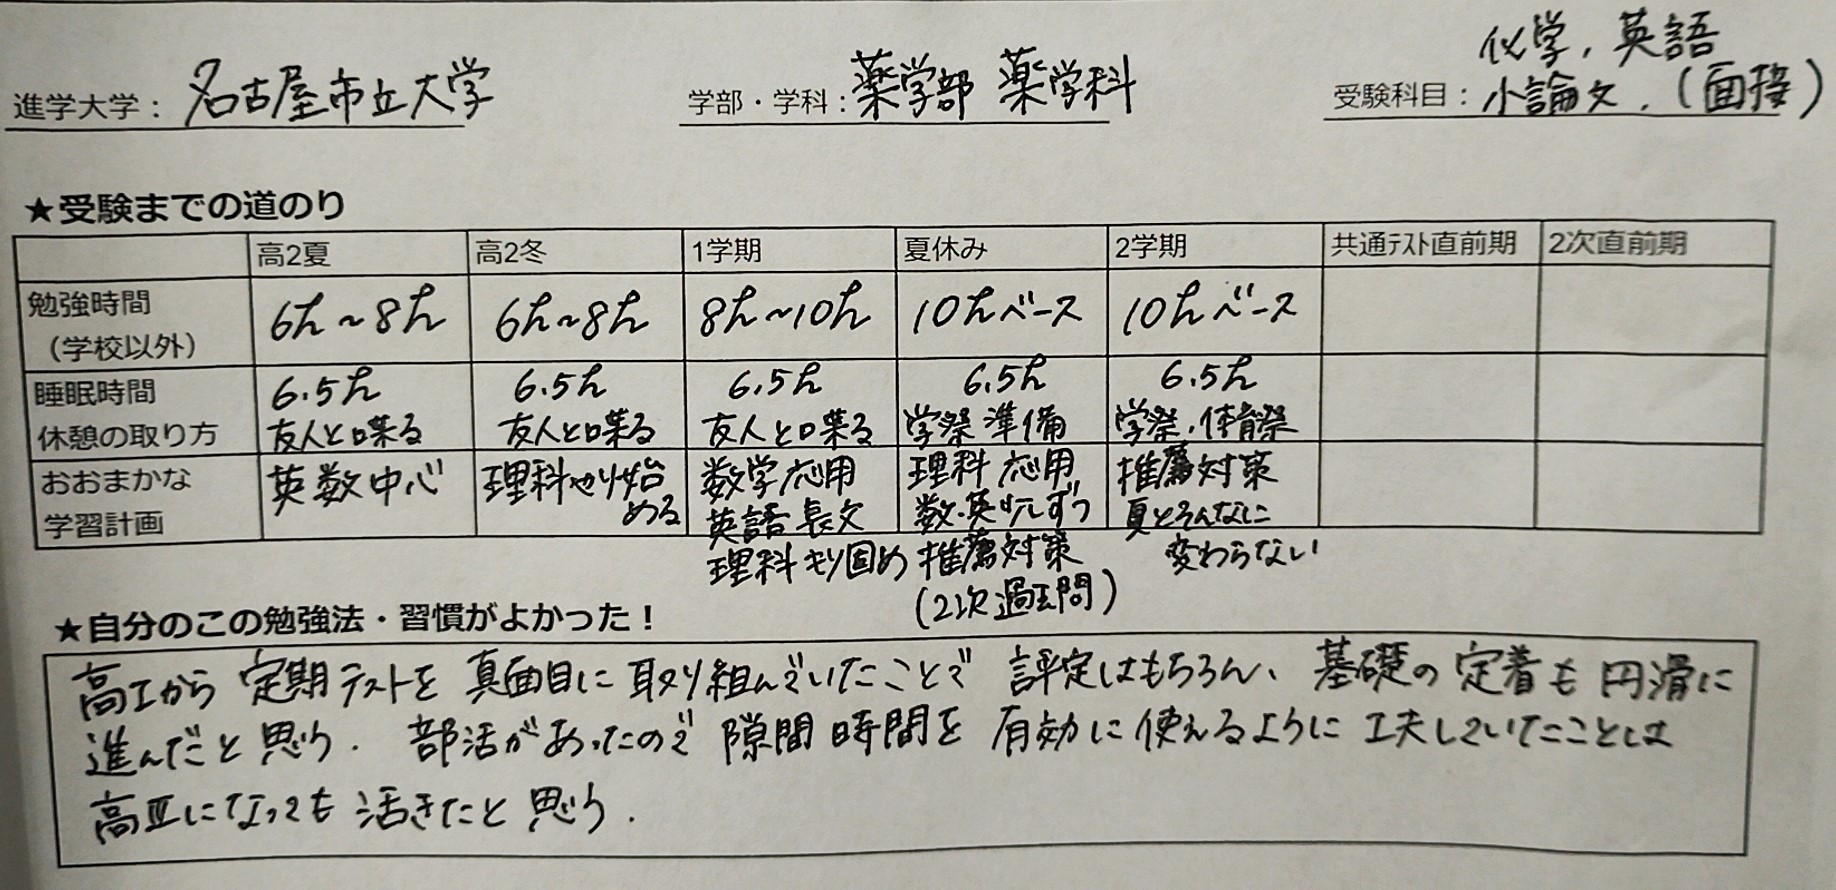 化学, 英語
進学大学： 名古屋市立大学 学部・学科：薬学部 薬学科 受験科目：小論文, (面接)
★受験までの道のり
高2夏 高2冬 1学期 夏休み 2学期 共通テスト直前期 2次直前期
勉強時間
（学校以外） 6h～8h 6h～8h 8h～10h 10hベース 10hベース
睡眠時間 6.5h 6.5h 6.5h 6.5h 6.5h
休憩の取り方 友人と喋る 友人と喋る 友人と喋る 学祭準備 学祭,体育祭
おおまかな 英数中心 理科やり始 数学応用 理科 応用 推薦対策
学習計画 める 英語長文 数.英少しずつ 夏とそんなに
理科 まり固め 推薦対策 変わらない
(2次過去問)
★自分のこの勉強法・習慣がよかった！
高Iから 定期テストを 真面目に取り組んでいたことで 評定はもちろん、基礎の定着も円滑に
進んだと思う. 部活があったので 隙間時間を 有効に使えるように工夫していたことは
高Ⅲになっても 活きたと思う.